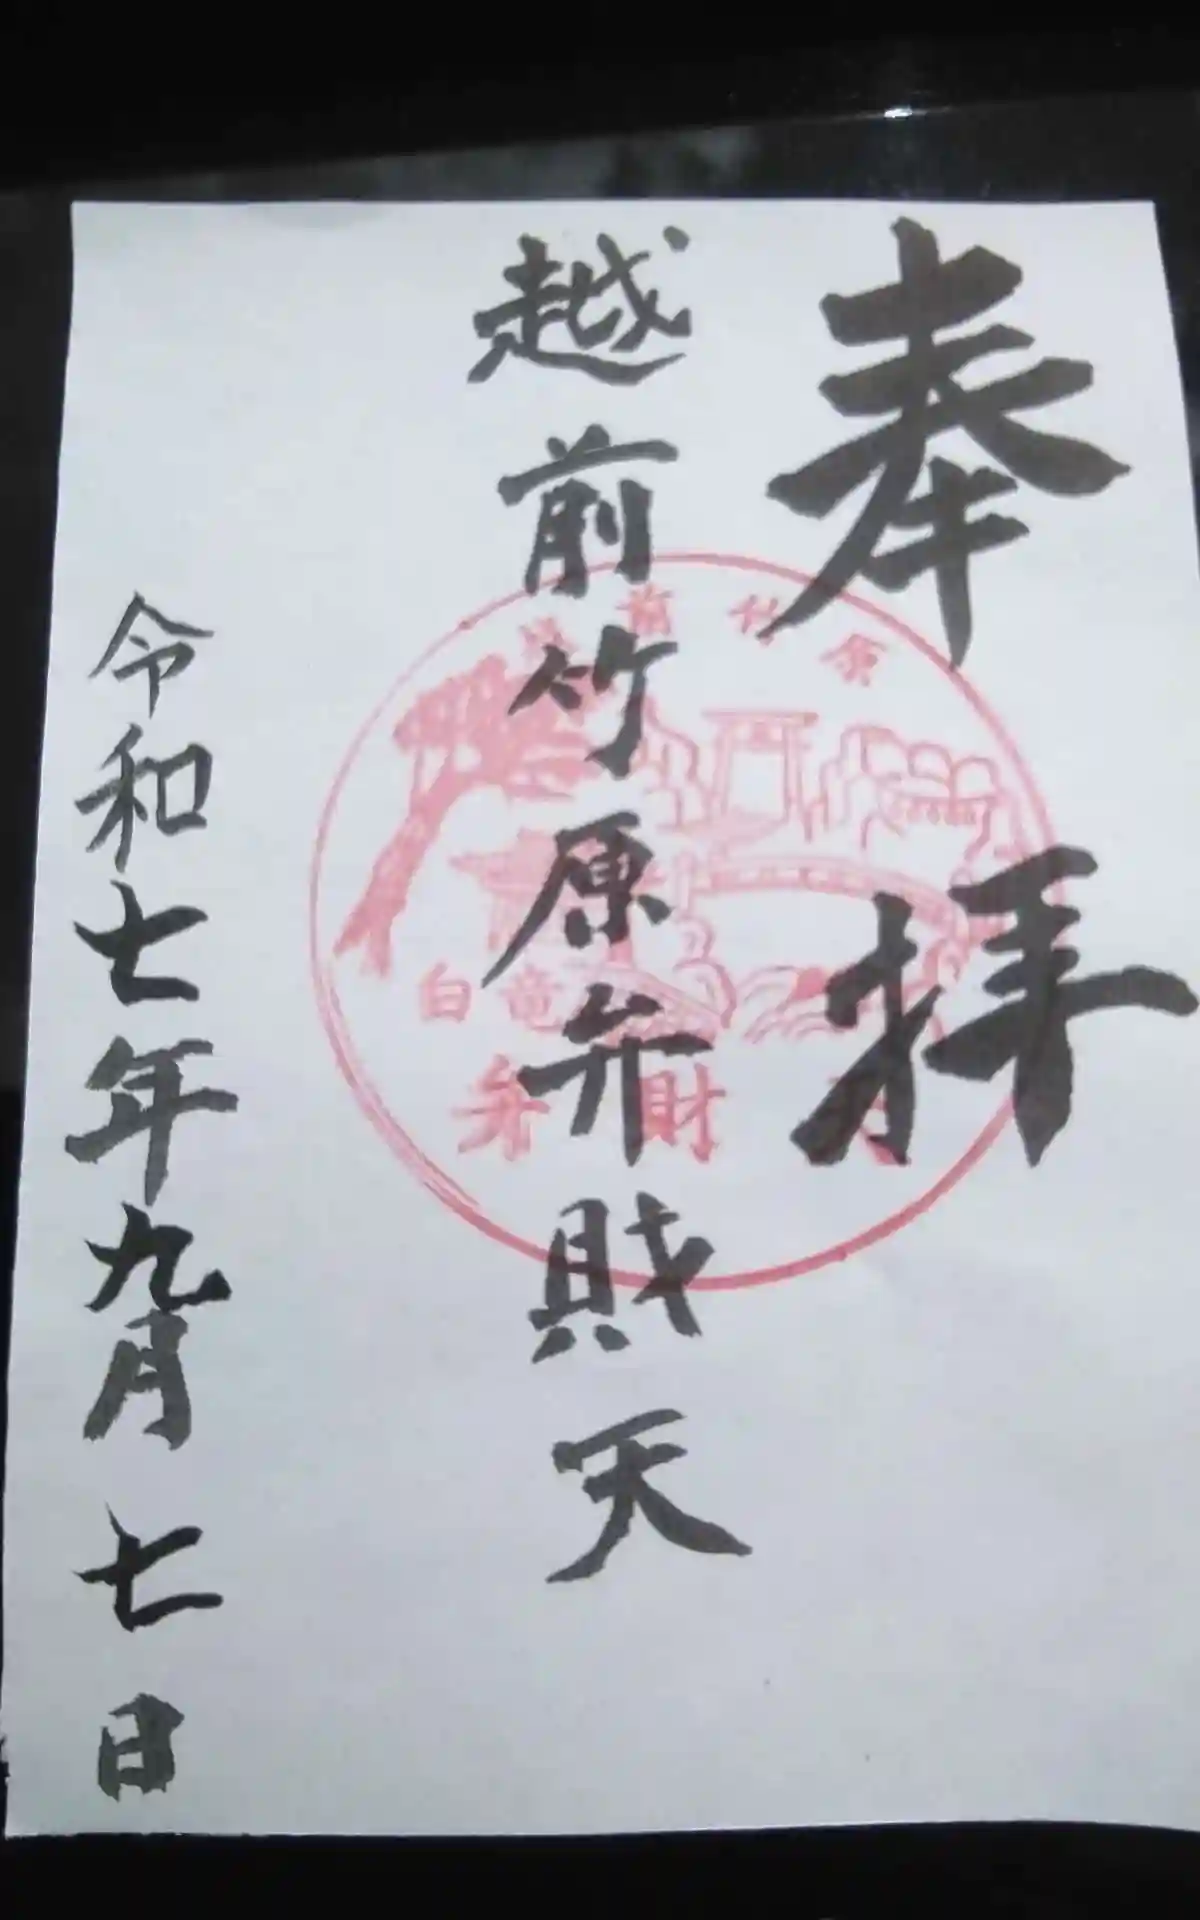 奉拝
越前竹原弁財天
令和七年九月七日
越前竹原
白竜
弁財天